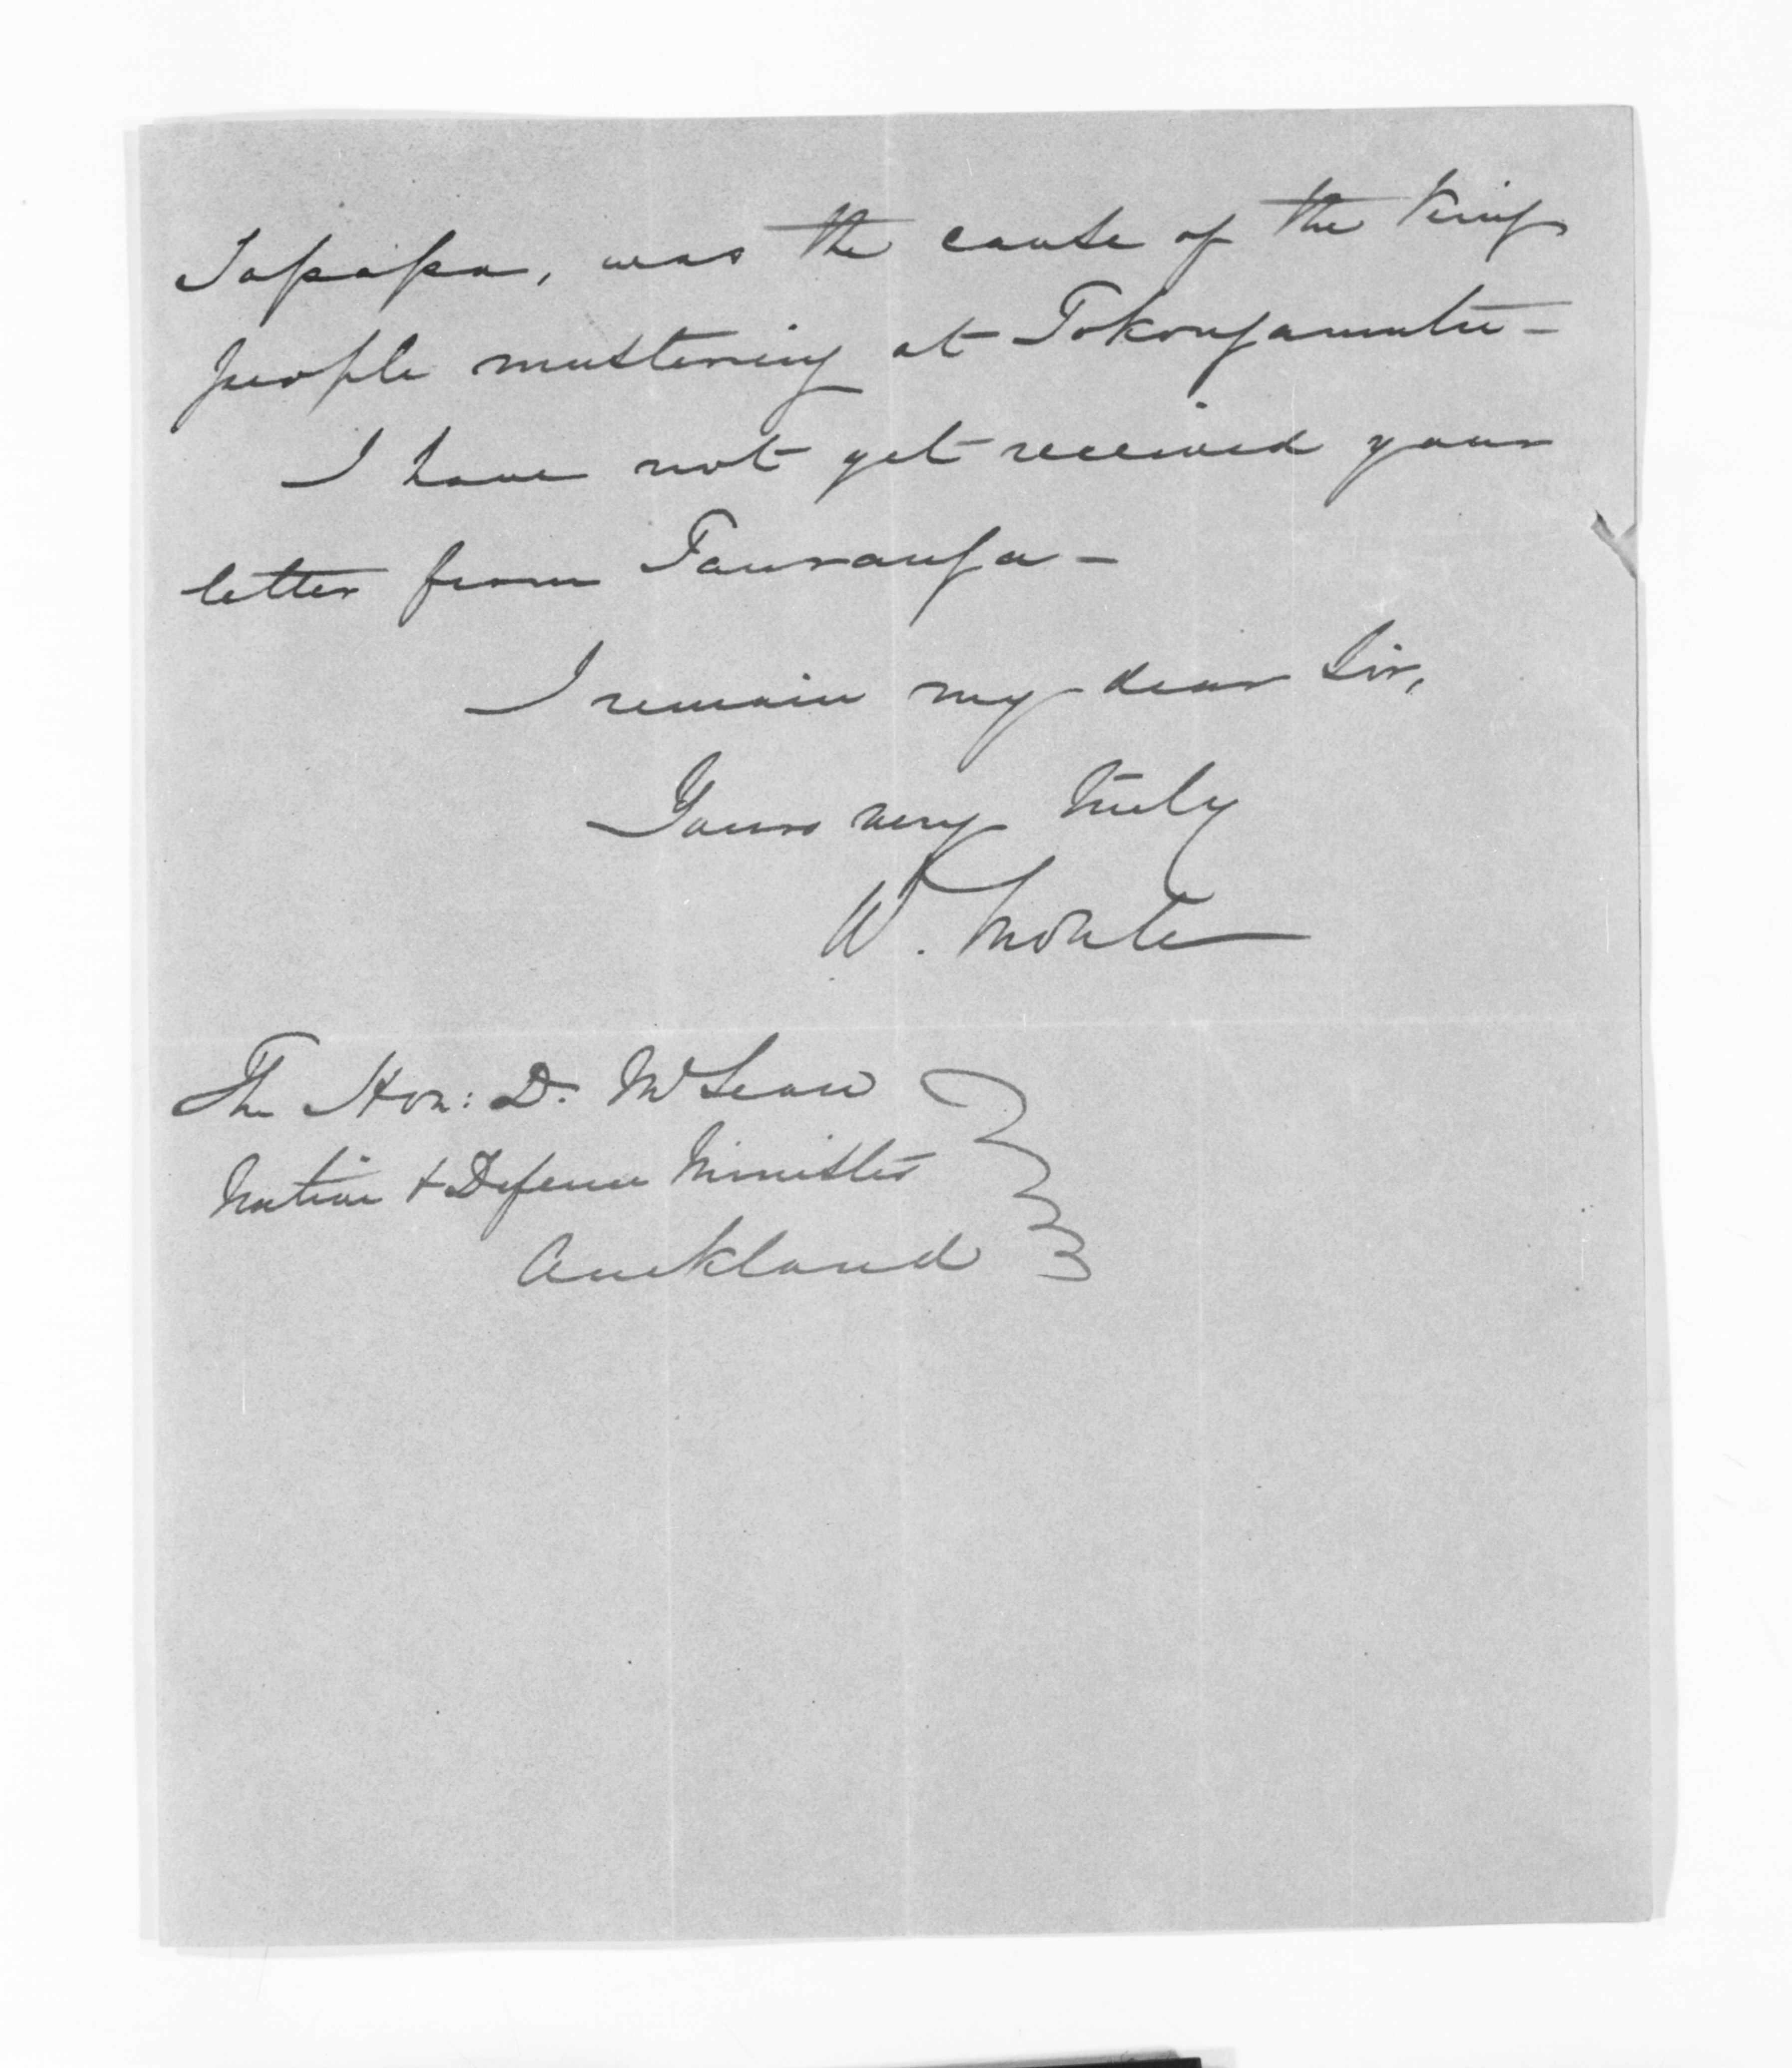 Tapapa, was the cause of the King
people mustering at Tokongamutu -
I have not yet received your
letter from Tauranga -
I remain my dear Sir,
Yours very truly
W. Moule
The Hon: D. McLean
Native & Defence Minister
Auckland